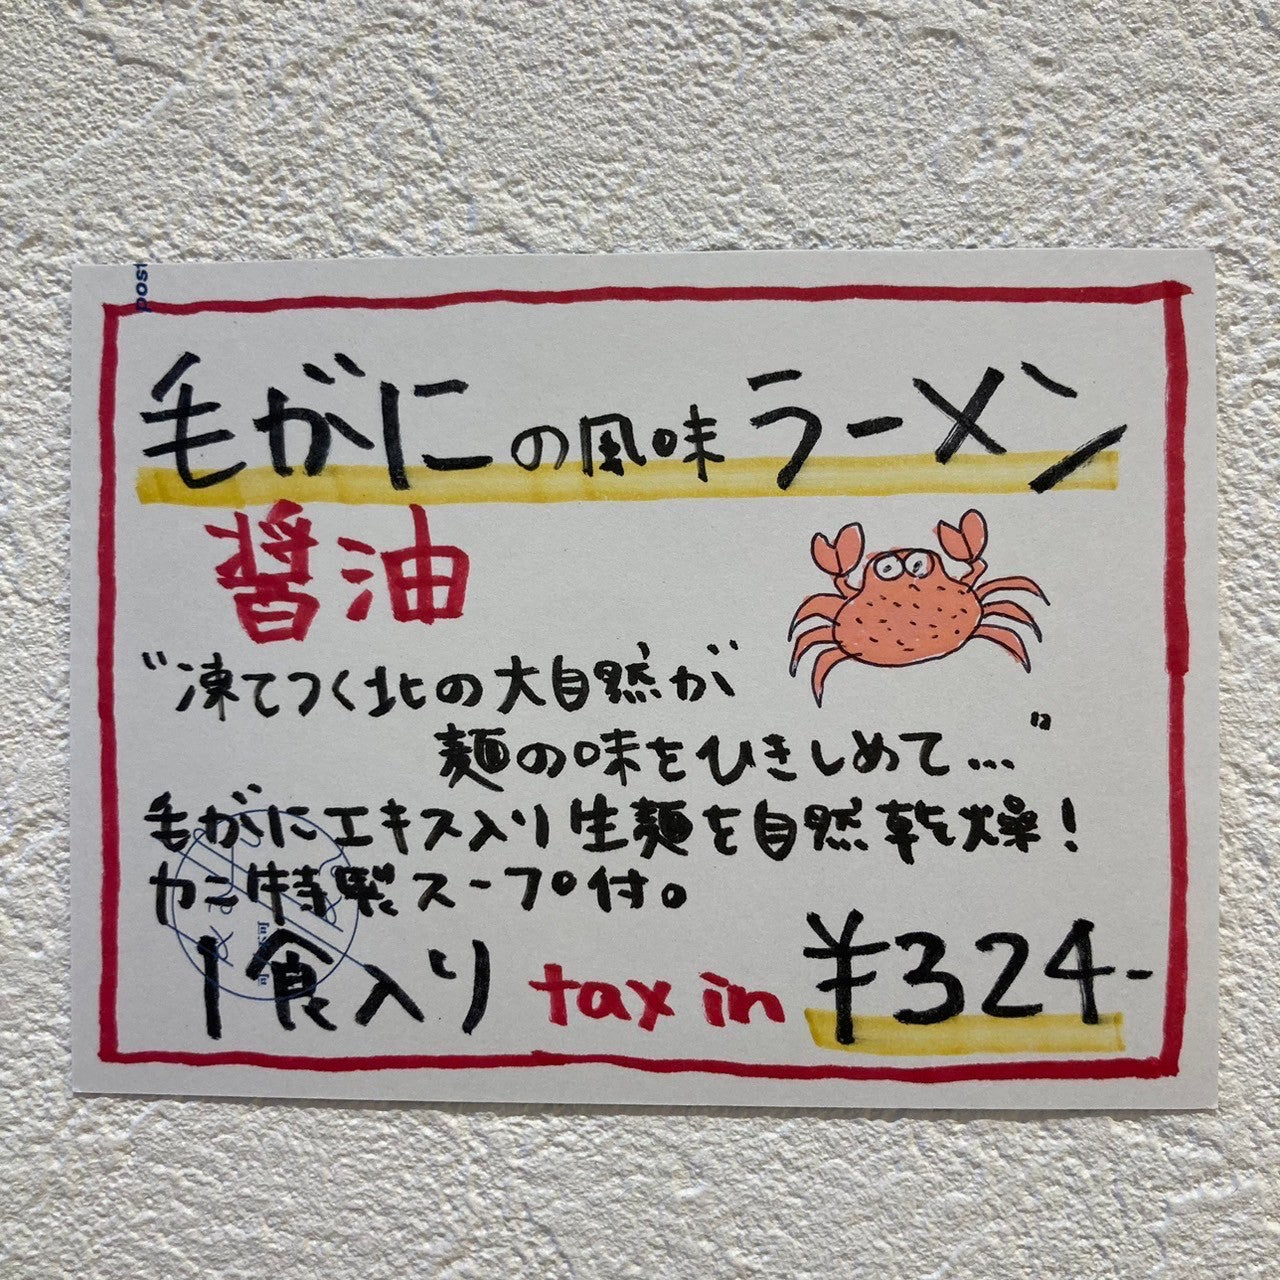 post
毛がにの風味ラーメン
醤油
"凍てつく北の大自然が
麺の味をひきしめて…"
毛がにエキス入り生麺を自然乾燥!
カニ特製スープ付。
1食入り tax in ¥324-